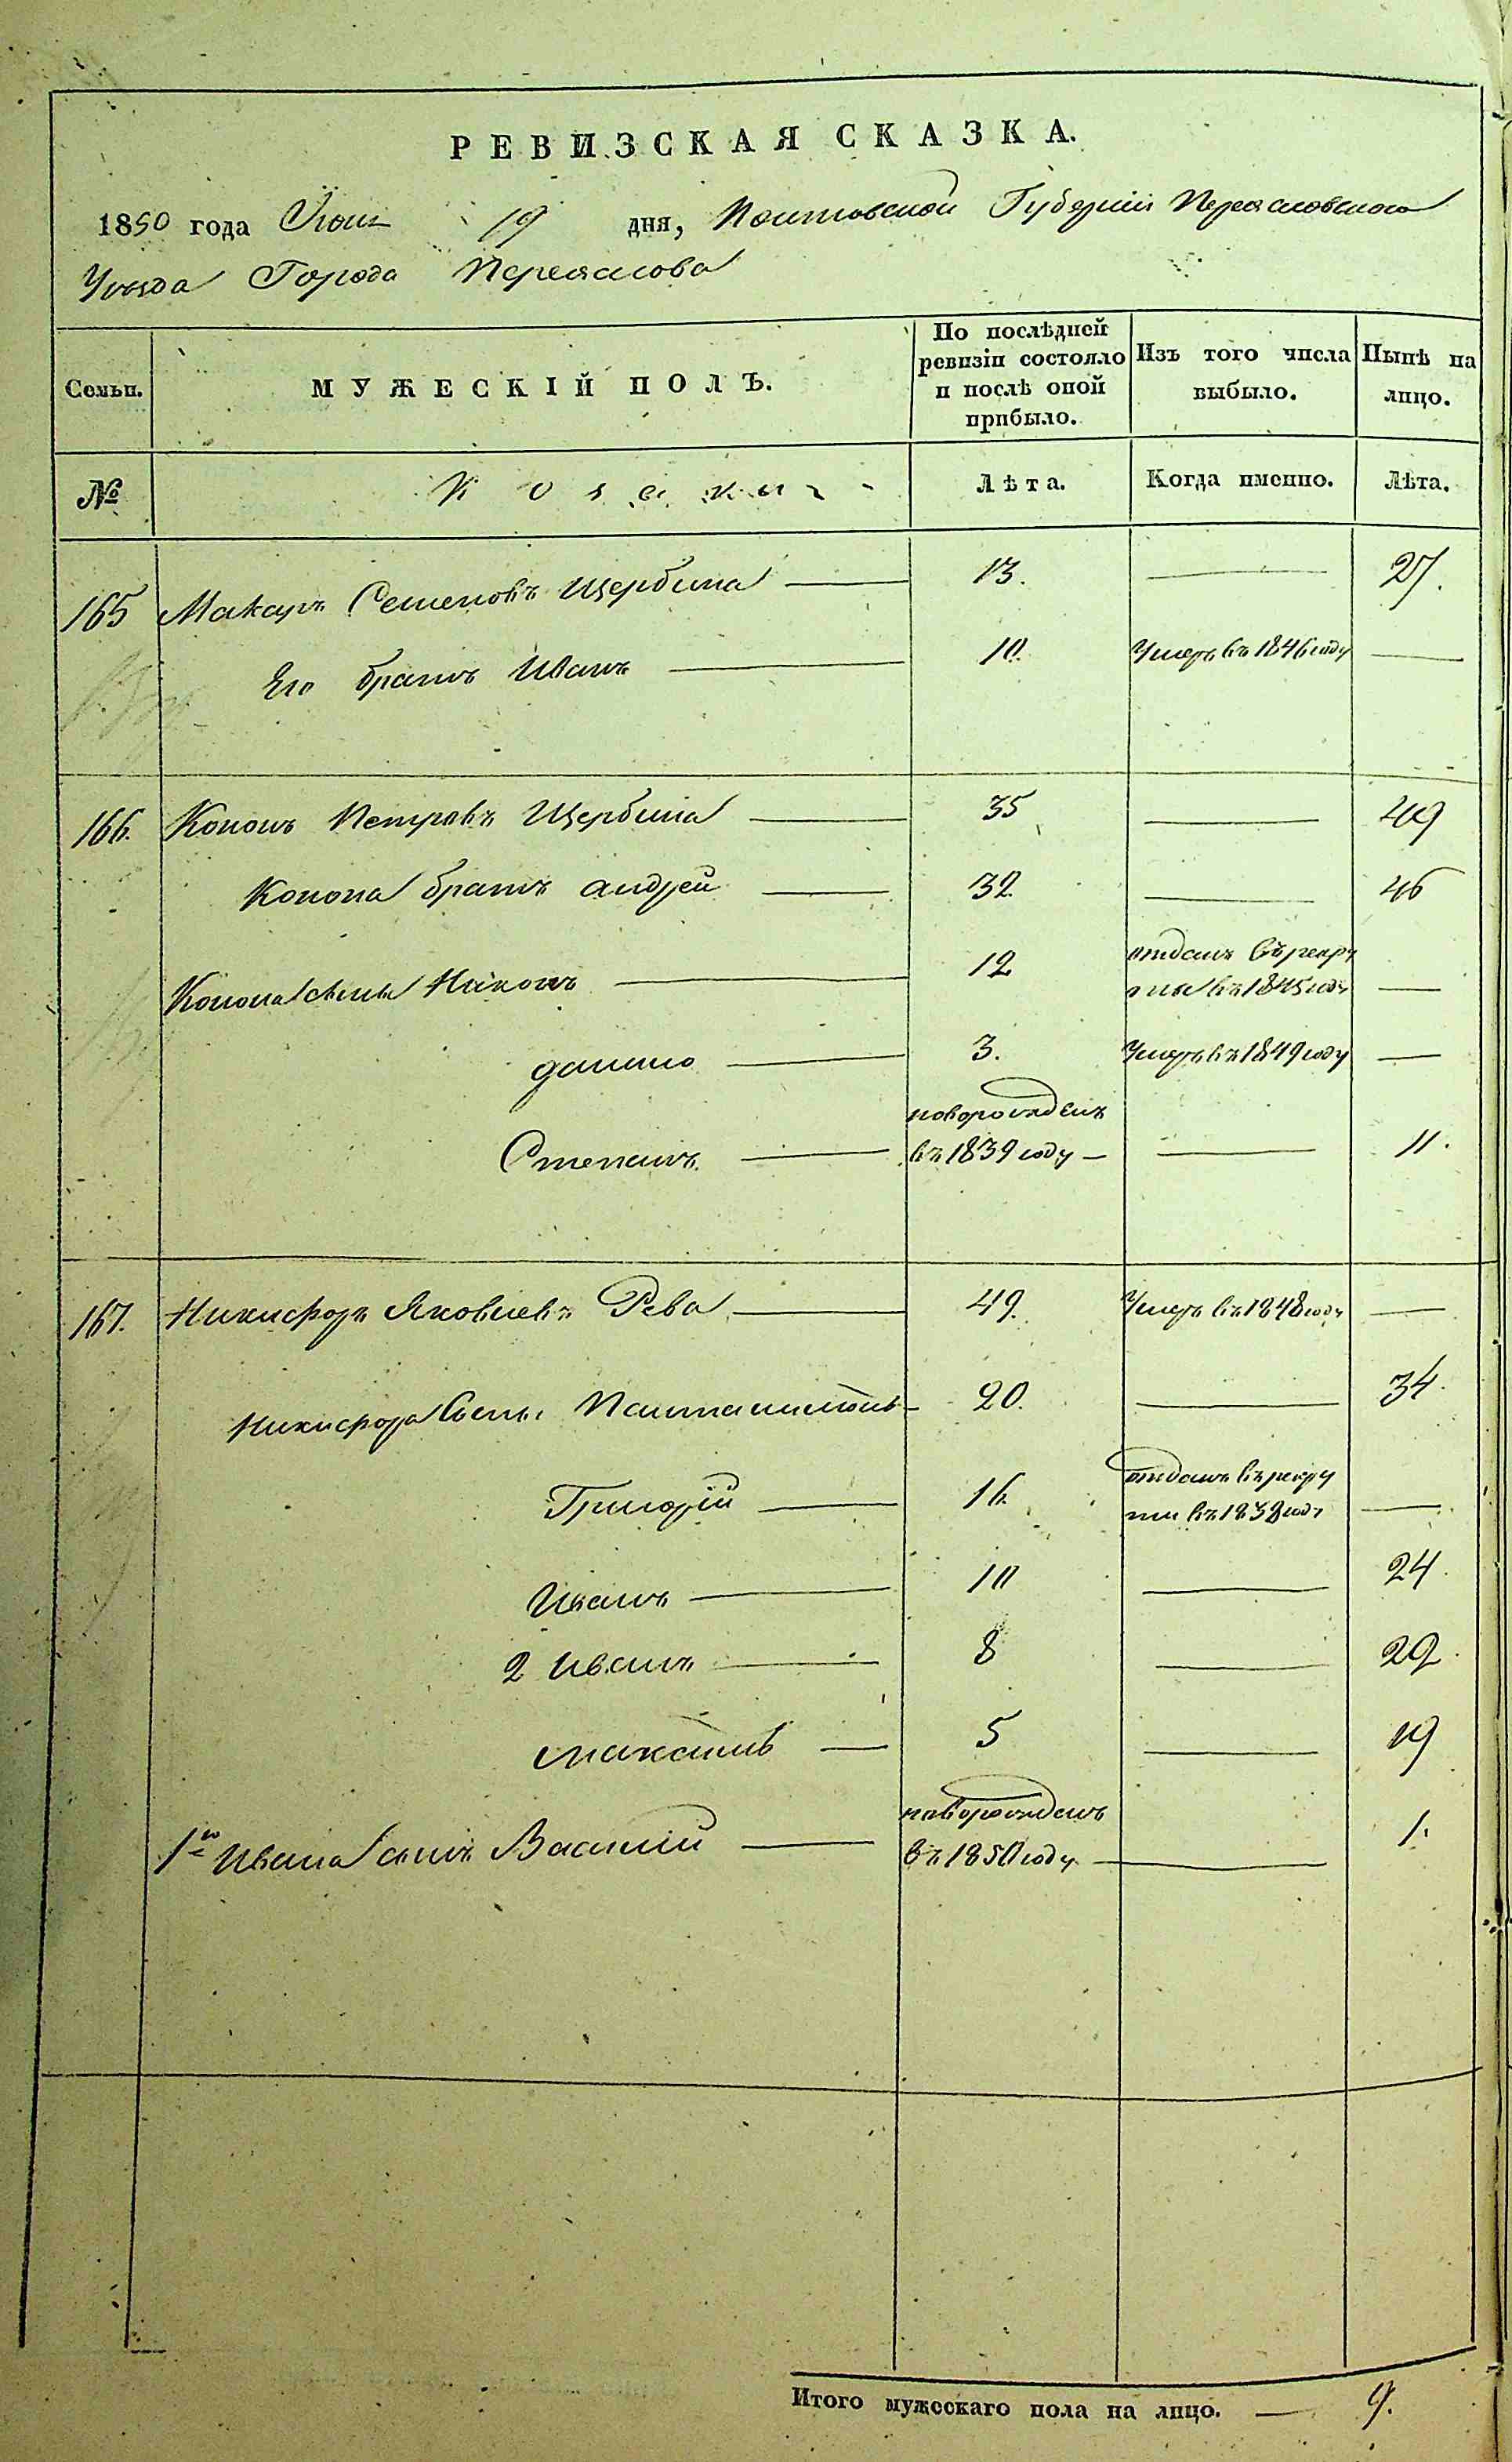 РЕВИЗСКАЯ СКАЗКА.
1850 года Юня 19 дня, Полтавской Губернии Переяславского
Уезда Города Переяслова
Семьи. МУЖЕСКІЙ ПОЛЪ. По послѣдней ревизіи состояло и послѣ оной прибыло. Изъ того числа выбыло. Нынѣ на лицо.
№ Козаки Лѣта. Когда именно. Лѣта.
165 Макаръ Семеновъ Щербина — 13. — 27.
Его братъ Иванъ — 10. Умеръ въ 1846 году —
166. Кононъ Петровъ Щербина — 35 — 49
Конона братъ андрей — 32 — 46
Конона сыны Никонъ — 12 отданъ въ рекру
ты въ 1845 году —
данило — 3. Умеръ въ 1849 году —
Степанъ — новорожденъ
въ 1839 году — — 11.
167. Никифоръ Яковлевъ Рева — 49. Умеръ въ 1848 году —
Никифора Сыны Пантелимонъ — 20. — 34.
Григорій — 16 отданъ въ рекру
ты въ 1838 году —
Иванъ — 10 — 24.
2 Иванъ — 8 — 22.
Максимъ — 5 — 19
1го Ивана сынъ Василій — новорожденъ
въ 1850 году — 1.
Итого мужескаго пола на лицо. — 9.